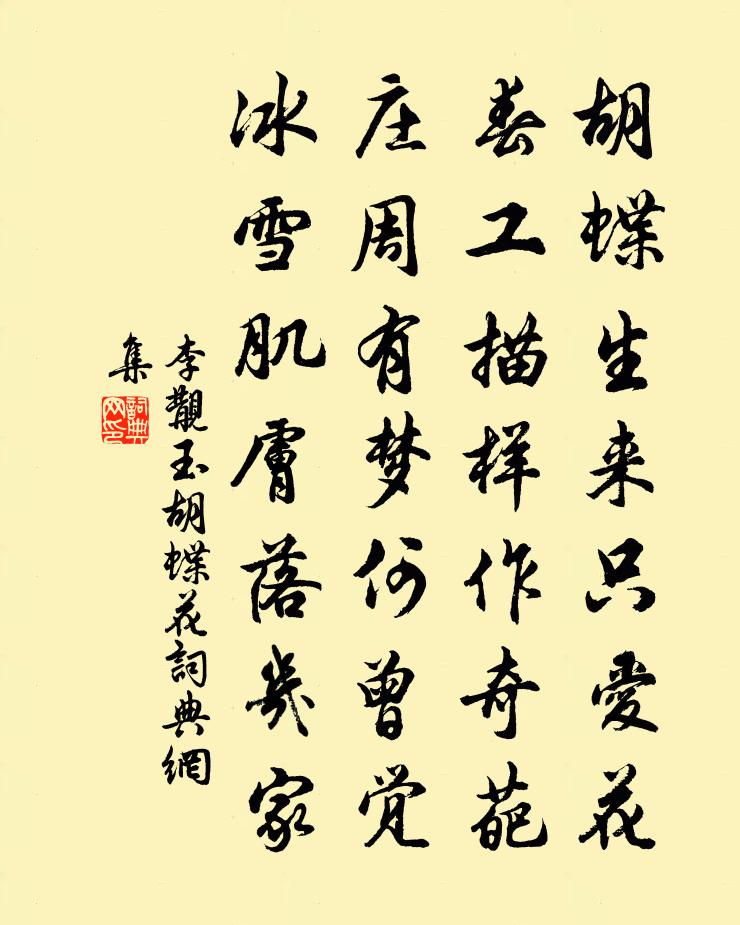 胡蝶生来只愛花
春工描样作奇葩
庄周有梦何曾觉
冰雪肌膚落幾家
李覯玉胡蝶花詞典網
集
詞典
网印